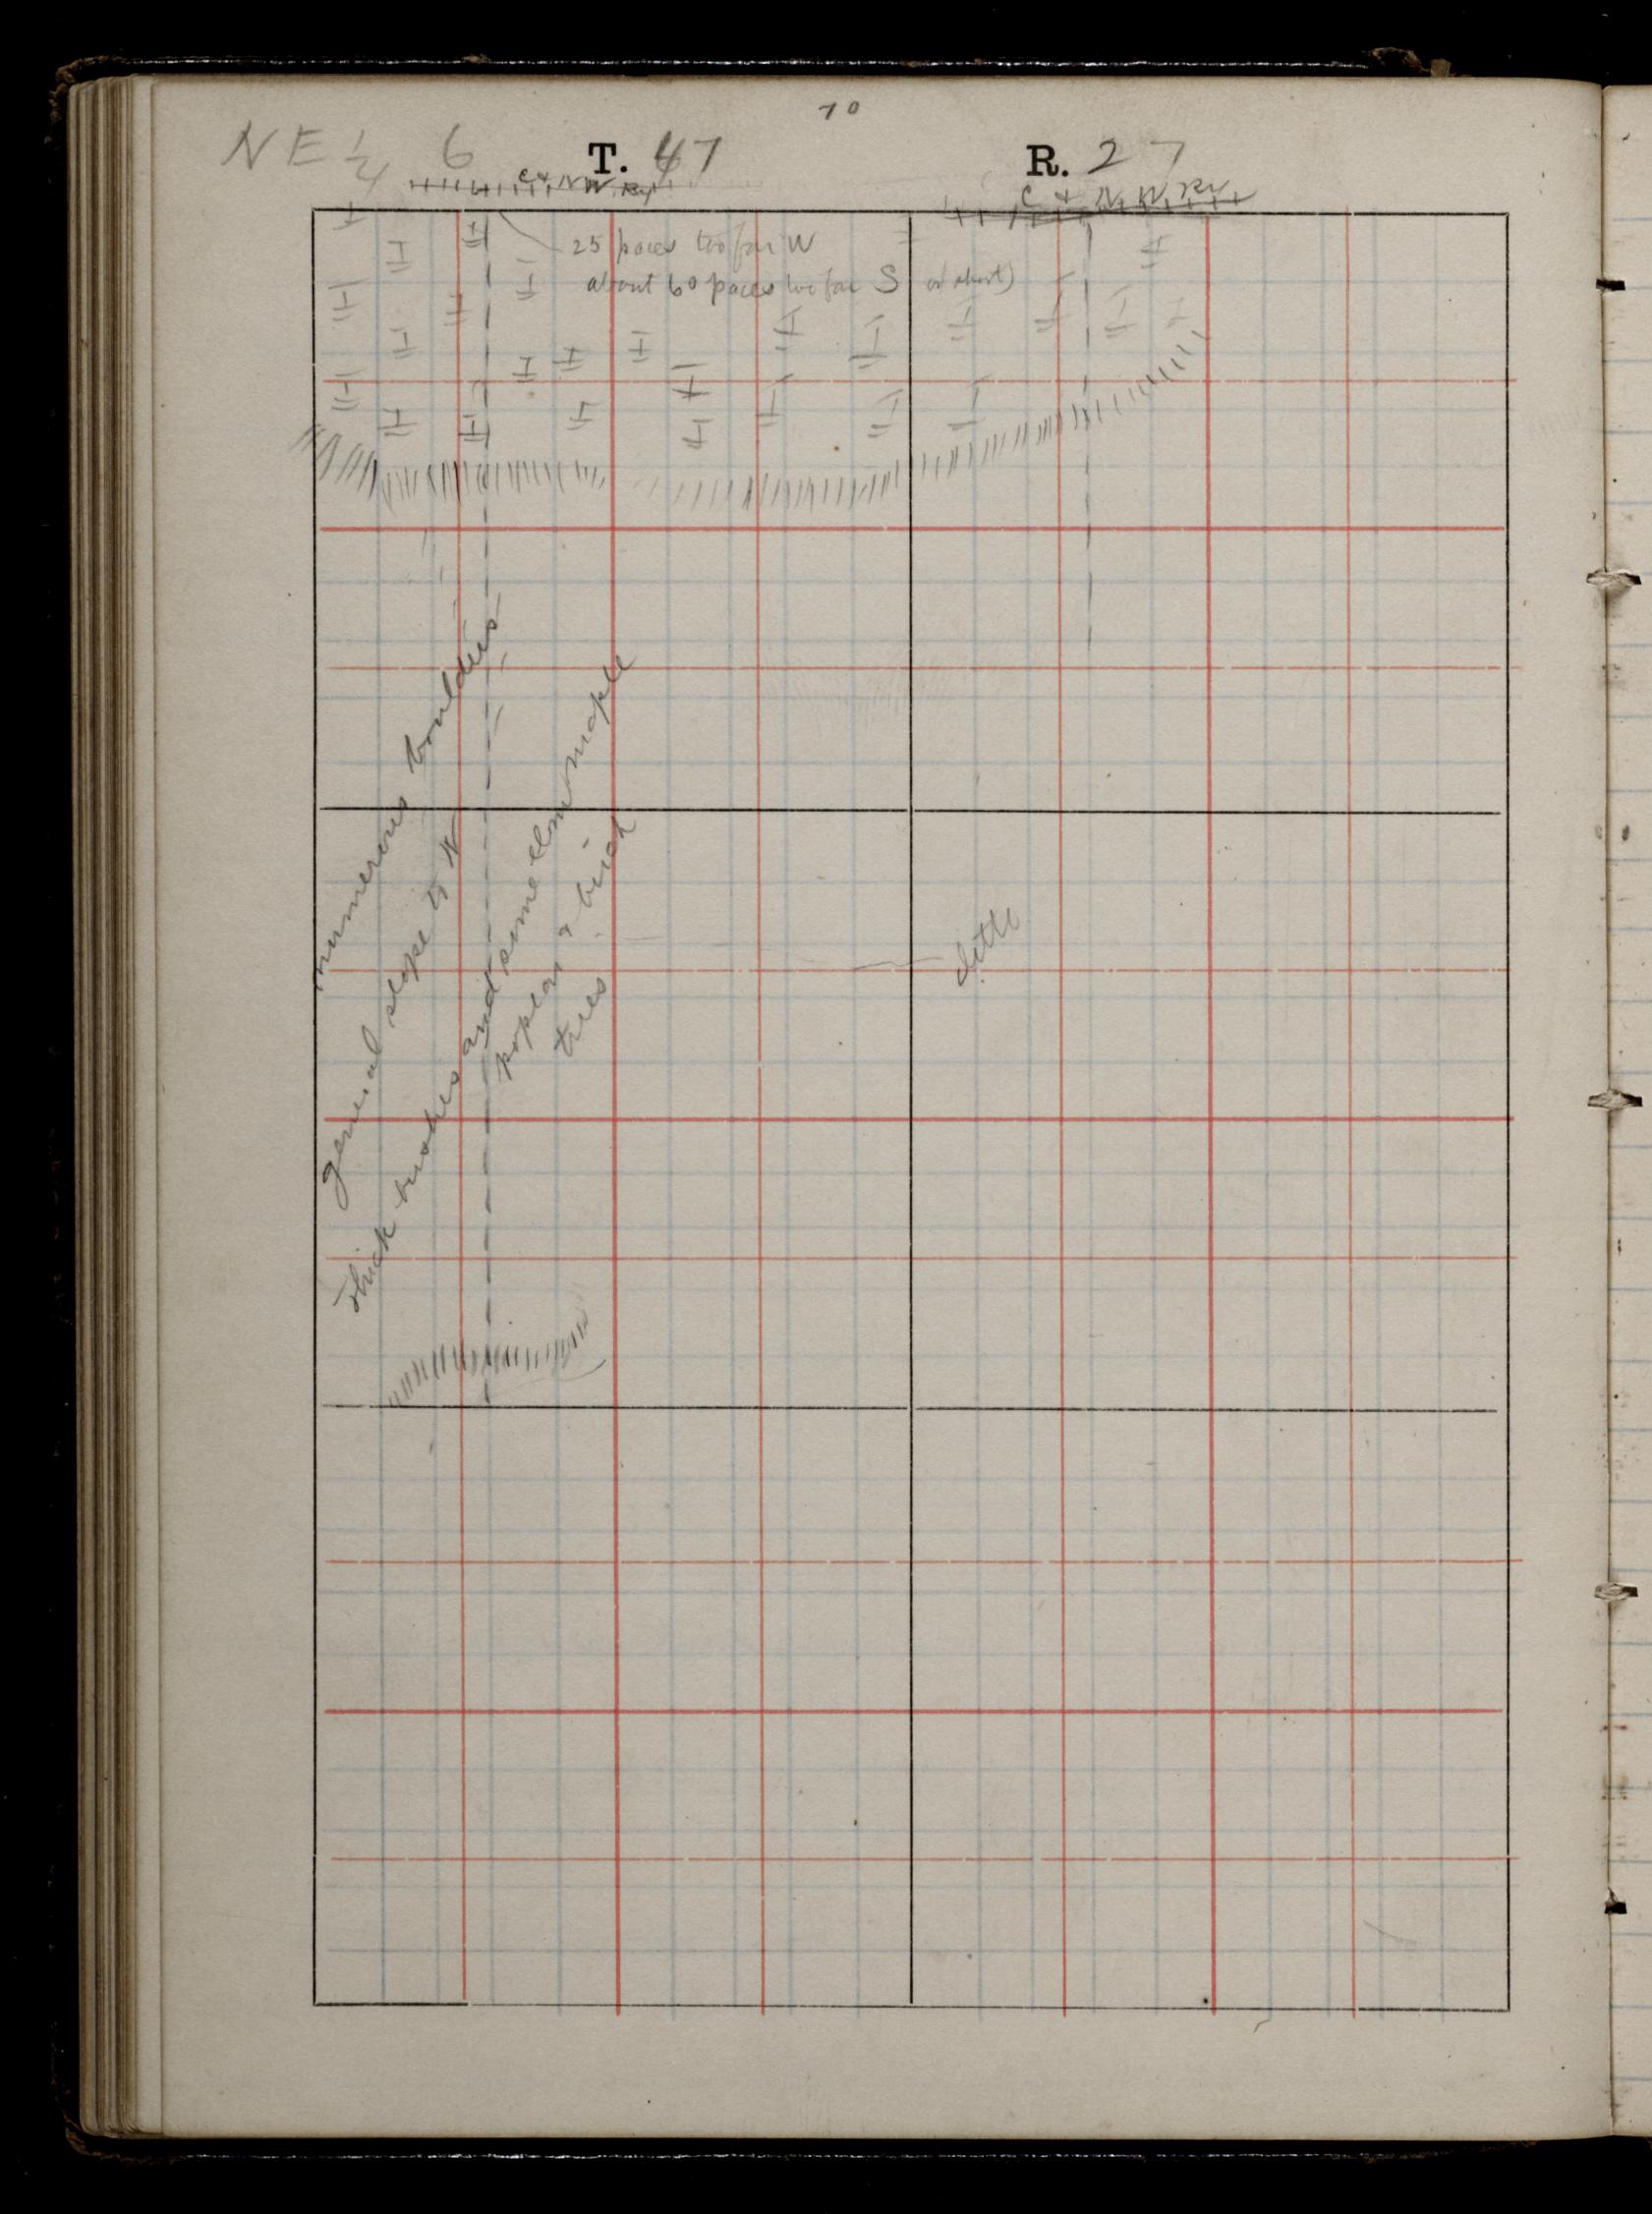 70
NE 1/4 6 T. 47 R. 27
C + N W Ry
C + N W Ry
25 paces too far W
about 60 paces too far S or short)
numerous boulders
general slope to N
thick bushes and some elm maple
poplar & birch
trees
ditto